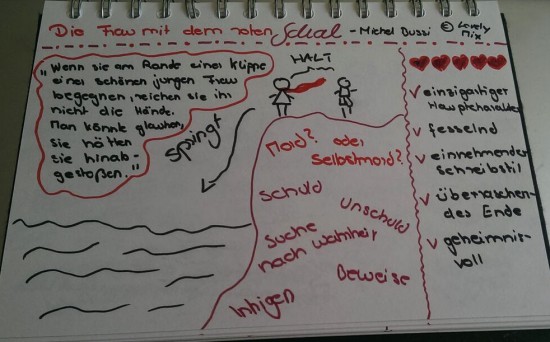 Die Frau mit dem roten Schal - Michel Bussi © Lovely Mix
"Wenn sie am Rande einer Klippe
einer schönen jungen Frau
begegnen, reichen sie ihr
nicht die Hände.
Man könnte glauben,
sie hätten
sie hinab-
gestoßen."
HALT
springt
Mord? oder
Selbstmord?
Schuld
Unschuld
Suche
nach Wahrheit
Beweise
Intrigen
✓ einzigartiger
Hauptcharakter
✓ fesselnd
✓ einnehmender
schreibstil
✓ überraschen-
des Ende
✓ geheimnis-
voll